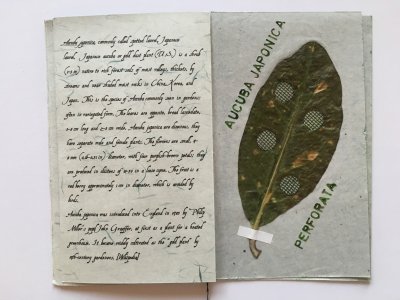 Aucuba japonica, commonly called spotted laurel, Japanese
laurel, Japanese aucuba or gold dust plant (U.S.), is a shrub
native to rich forest soils of moist valleys, thickets, by
streams and near shaded moist rocks in China, Korea, and
Japan. This is the species of Aucuba commonly seen in gardens
often in variegated form. The leaves are opposite, broad lanceolate,
long and wide. Aucuba japonica are dioecious, they
have separate male and female plants. The flowers are small,
diameter, with four purplish-brown petals; they
are produced in clusters of 10-30 in a loose cyme. The fruit is a
red berry approximately 1 cm in diameter, which is avoided by
birds.
Aucuba japonica was introduced into England in 1783 by Philip
Miller's pupil John Graeffer, at first as a plant for a heated
greenhouse. It became widely cultivated as the "gold plant" by
19th-century gardeners. [Wikipedia]
AUCUBA JAPONICA
PERFORATA